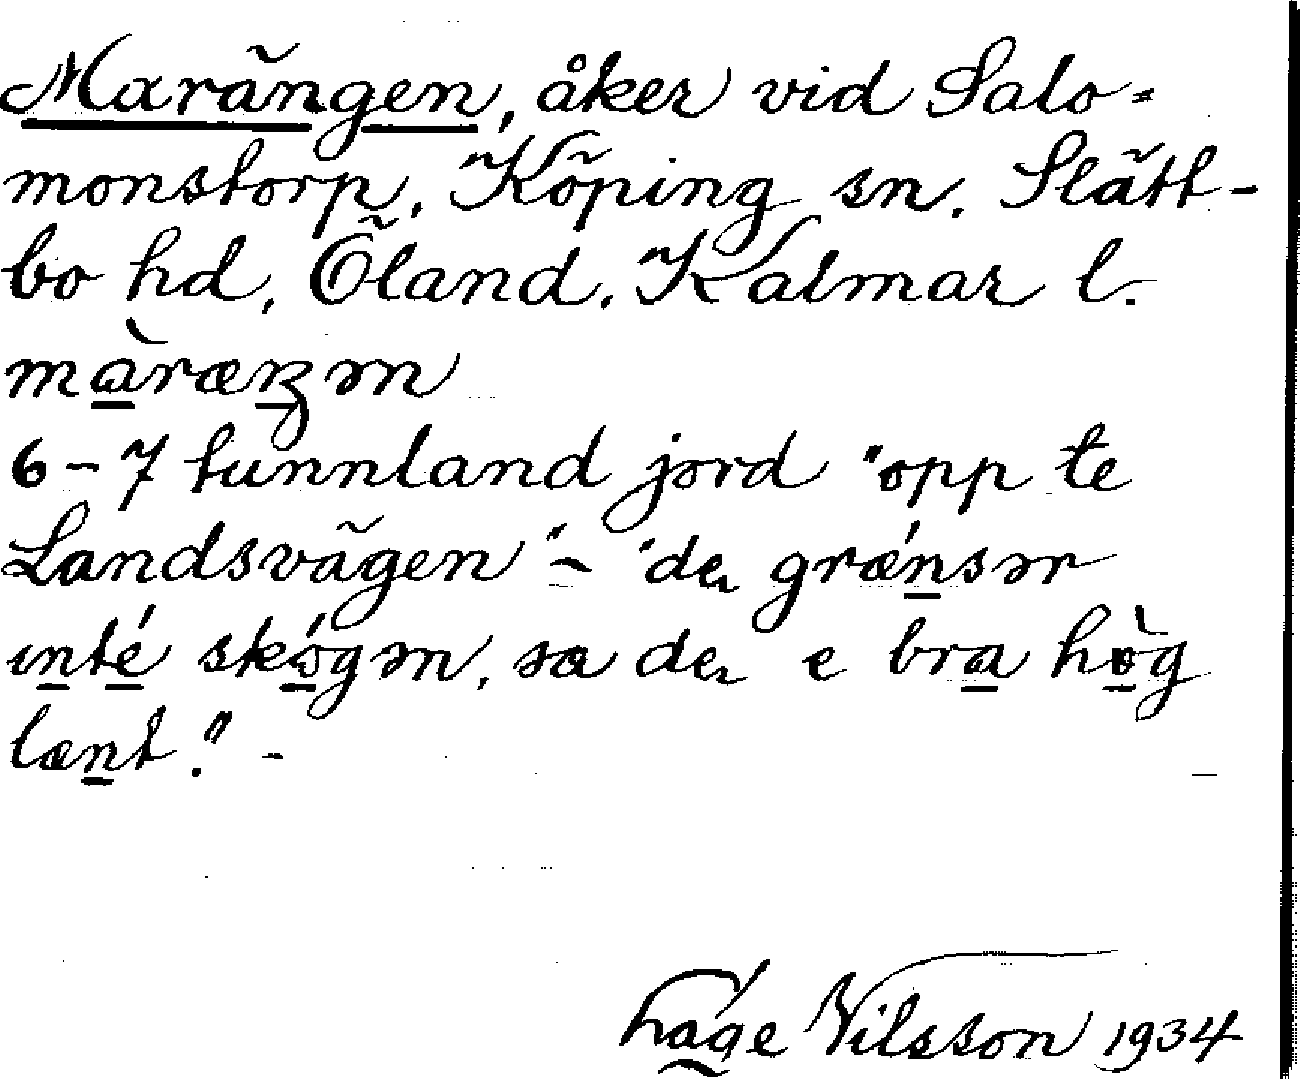 Marängen, åker vid Salo-
monstorp, Köping sn. Slätt-
bo hd, Öland. Kalmar l.
màræŋən
6-7 tunnland jord "opp te
Landsvägen" - "de grænsər
ınté skógən, sa de e bra hòg
lænt." -
Håge Nilsson 1934